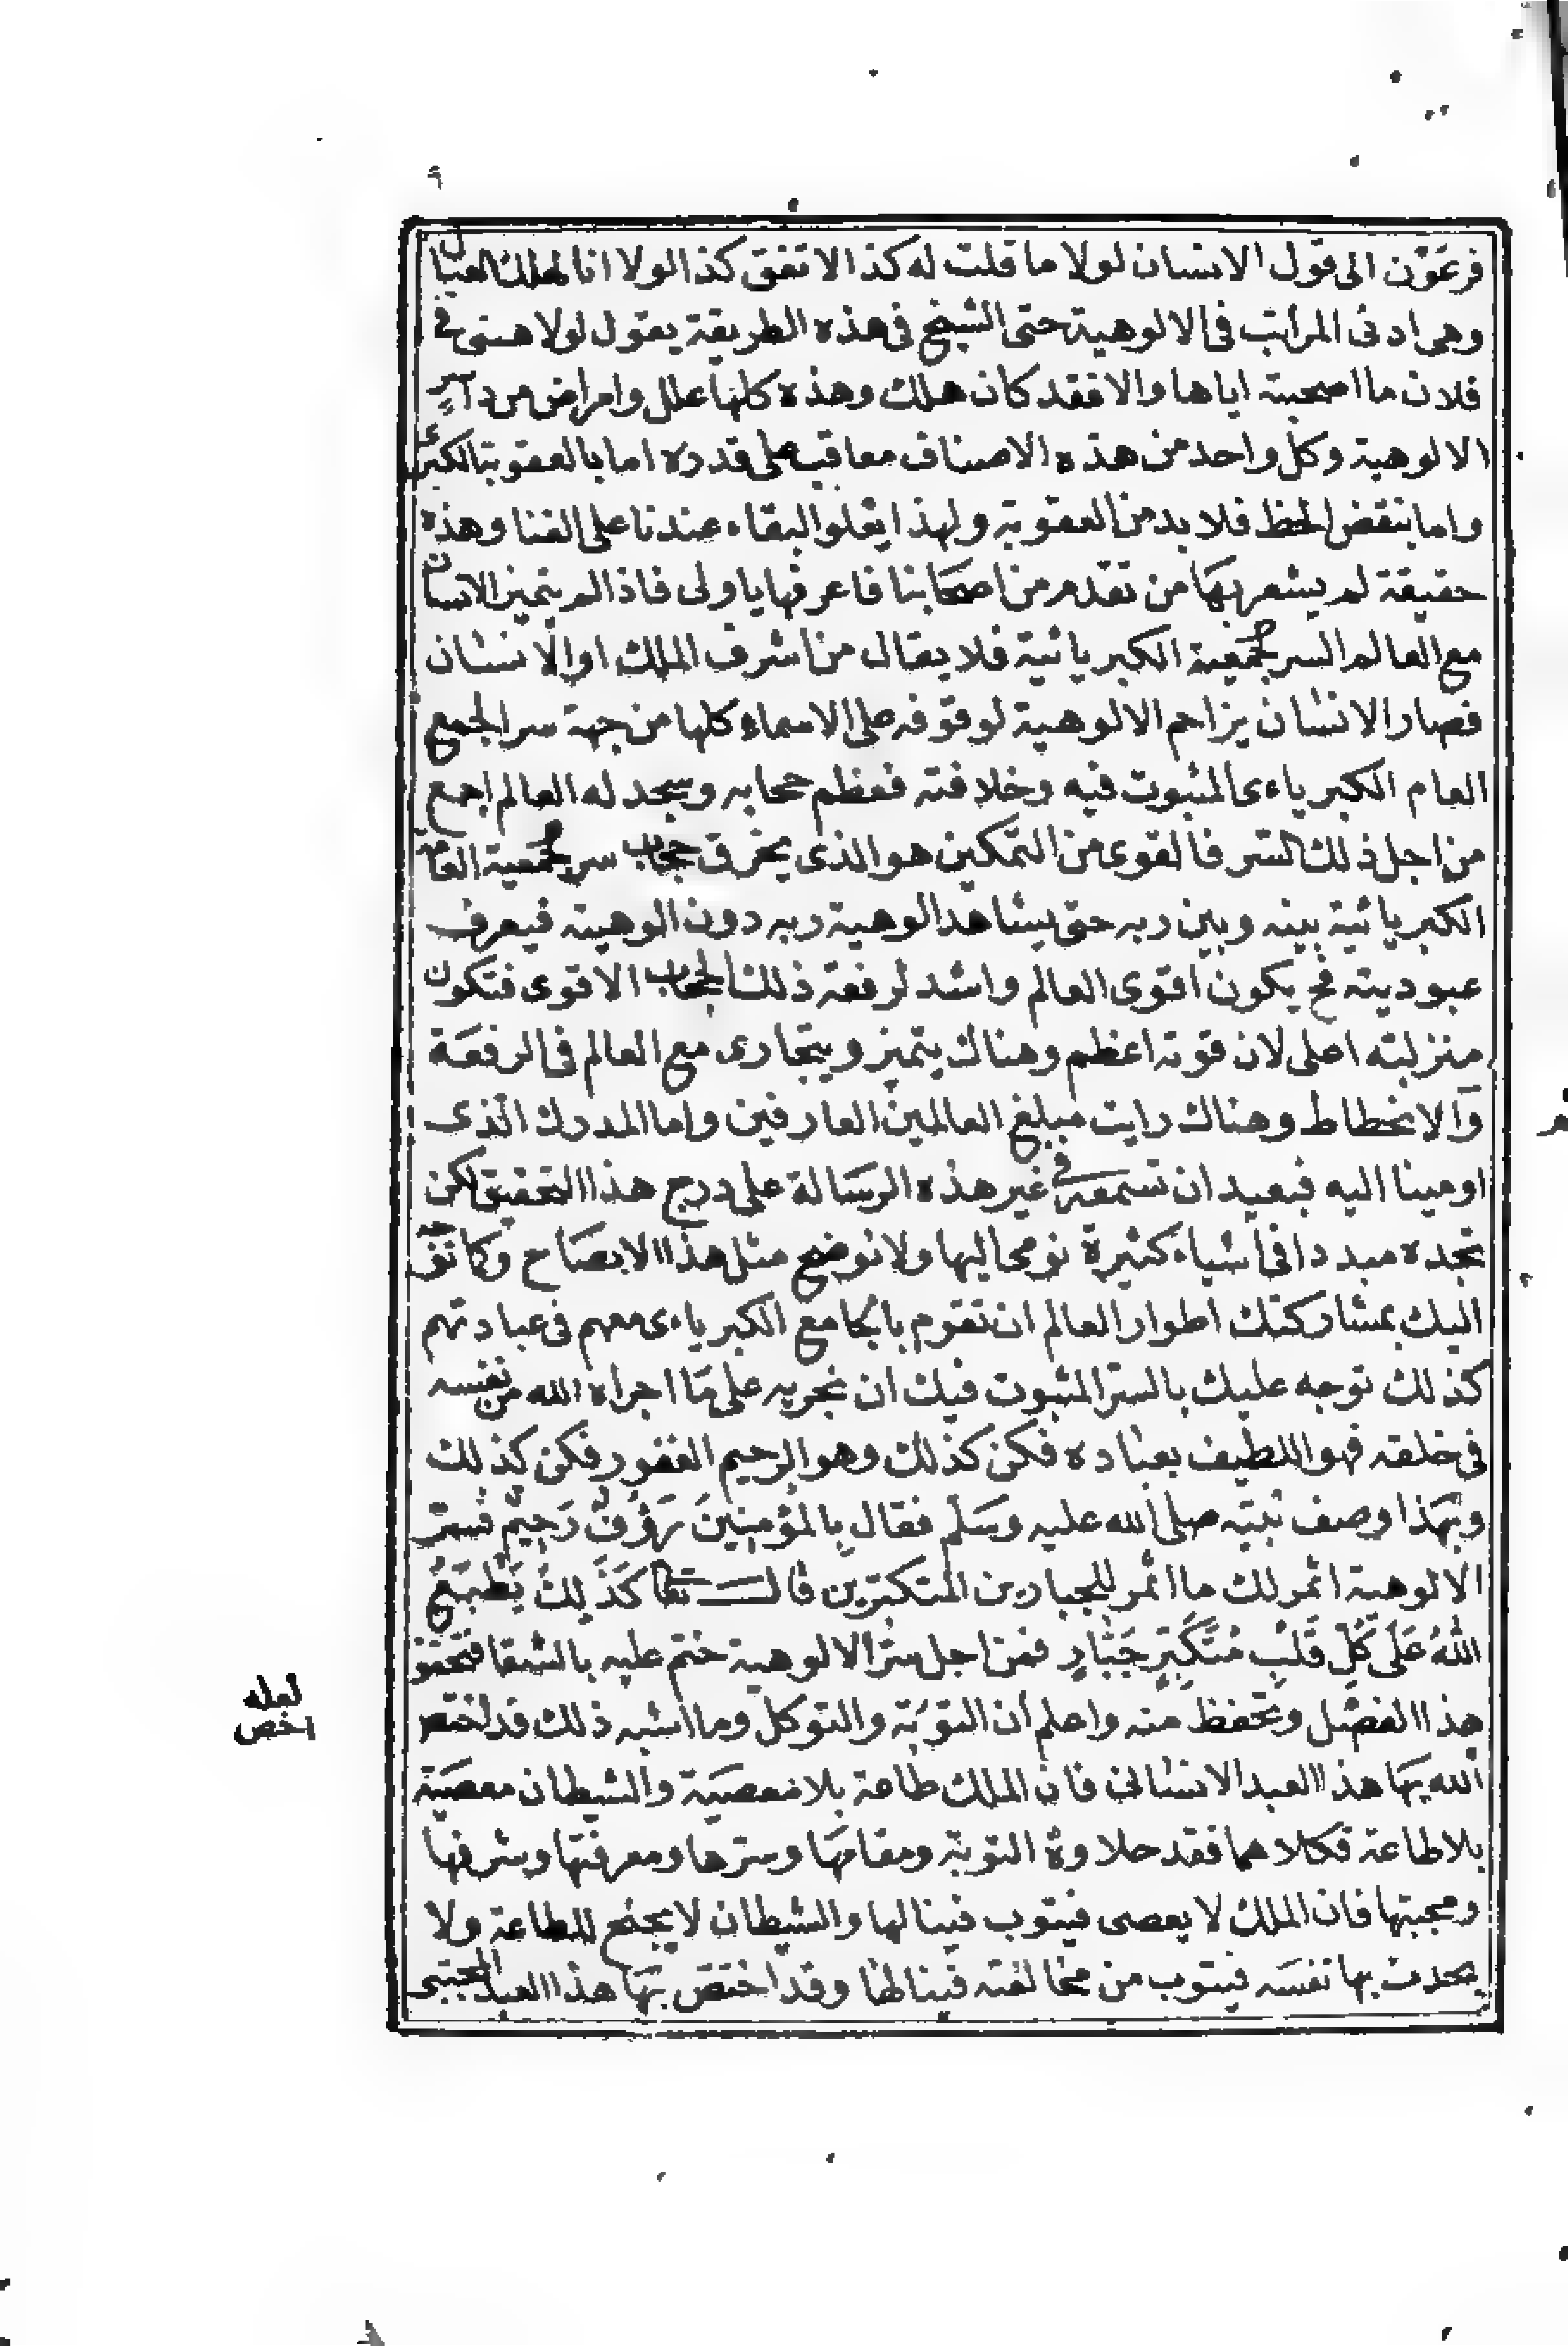 ٩
فرعون الى قول الانسان لولا ما قلت له كذا لاتفق كذا لولا انا لهلك العيال
وهى ادنى المراتب فى الالوهية حتى الشيخ فى هذه الطريقة يقول لولا همتى فى
فلان ما اصحبته اياها والا فقد كان هلك وهذه كلها علل وامراض من داء
الالوهية وكل واحد من هذه الاصناف معاقب على قدره اما بالعقوبة الكبرى
واما بنقض الحظ فلا بد من العقوبة ولهذا يعلو البقاء عندنا على الفنا وهذه
حقيقة لم يشعر بها من تقدم من اصحابنا فاعرفها يا ولى فاذا لم يتميز الانسان
مع العالم السر جمعية الكبريائية فلا يقال من اشرف الملك او الانسان
فصار الانسان يزاحم الالوهية لوقوفه على الاسماء كلها من جهة سر الجمع
العام الكبرياءى المثبوت فيه وخلافته فعظم حجابه وسجد له العالم اجمع
من اجل ذلك السر فالقوى من التمكين هو الذى يخرق حجاب سر جمعية العامة
الكبريائية بينه وبين ربه حتى يشاهد الوهية ربه دون الوهيته فيعرف
عبوديته فح يكون اقوى العالم واشد لرفعة ذلك الحجاب الاقوى فتكون
منزلته اعلى لان قوته اعظم وهناك يتميز ويتجارى مع العالم فى الرفعة
والانحطاط وهناك رايت مبلغ العالمين العارفين واما المدرك الذى
اومينا اليه فبعيد ان تسمعه فى غير هذه الرسالة على درج هذا التحقيق لكن
تجده مبددا فى اشياء كثيرة نومى اليها ولا نوضح مثل هذا الايضاح وكما توجه
اليك بمشاركتك اطوار العالم ان تقوم بالجامع الكبرياءى معهم فى عبادتهم
كذلك توجه عليك بالسر المثبوت فيك ان تجريه على ما اجراه الله من نفسه
فى خلقه فهو اللطيف بعباده فكن كذلك وهو الرحيم الغفور فكن كذلك
وبهذا وصف نبيه صلى الله عليه وسلم فقال بِالمؤمنينَ رَؤُفٌ رَحِيمٌ فسر
الالوهية اثمر لك ما اثمر للجبارين المتكبرين قال تعا كَذَلِكَ يَطْبَعُ
اللهُ عَلَى كُلِّ قَلْبِ مُتَكَبِّرٍ جَبَّارٍ فمن اجل سر الالوهية ختم عليه بالشقا فتحقق
هذا الفصل وتحفظ منه واعلم ان التوبة والتوكل وما اشبه ذلك قد اختص
الله بها هذا العبد الانسانى فان الملك طاعة بلا معصية والشيطان معصية
بلا طاعة فكلاهما فقد حلاوة التوبة ومقامها وسرها ومعرفتها وشرفها
ومحبتها فان الملك لا يعصى فيتوب فينالها والشيطان لا يجنح للطاعة ولا
يحدث بها نفسه فيتوب من مخالفته فينالها وقد اختص بها هذا العبد المجتبى
لعله
اخص